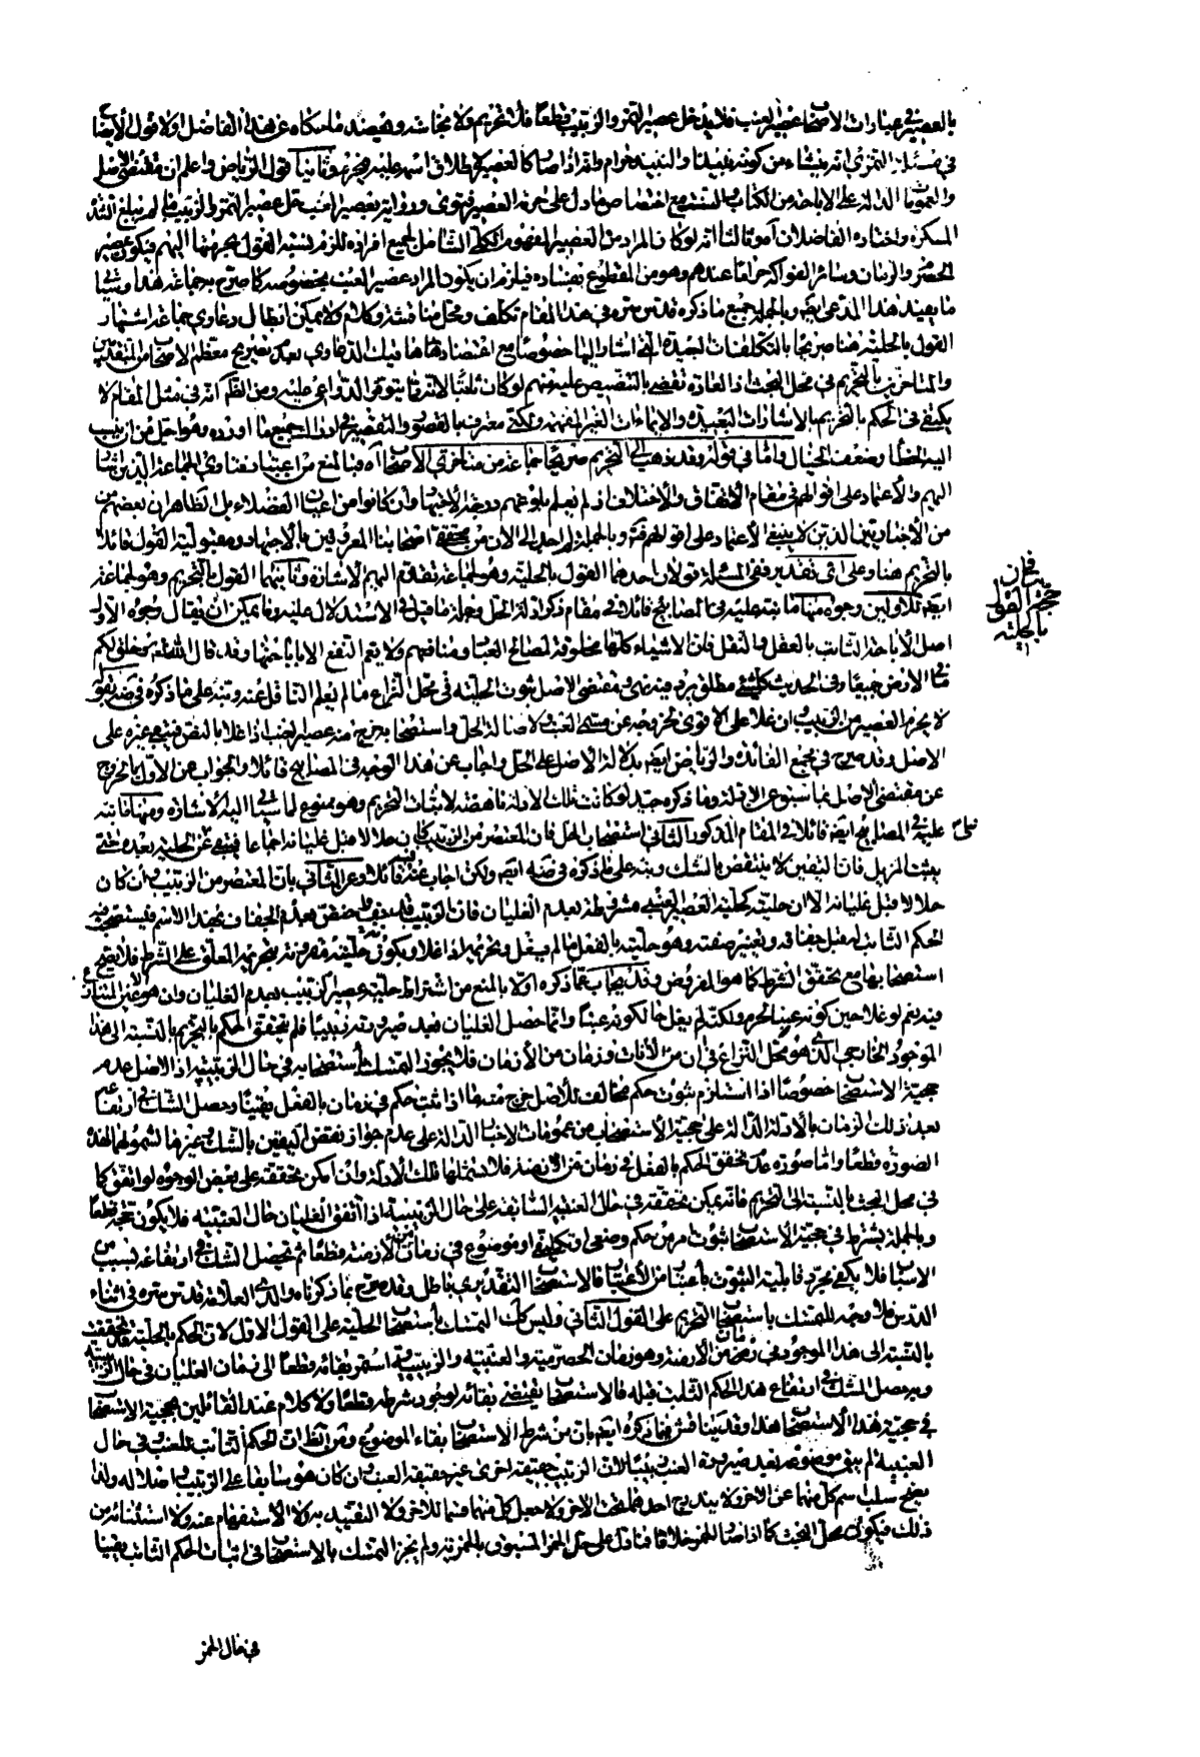 بالعصير في عبارات الاصحاب عصير العنب فلا يدخل عصير التمر والزبيب قطعًا فلا تحريم ولا نجاسة ويعضده ما حكاه عن هذا الفاضل اولا قول الاصحاب
في مسئلة التمر في انه نشاء من كونه نبيذا والنبيذ حرام وانه اذا صار كالعصير في اطلاق اسمه عليه فيحرم وثانيا قول الرياض واعلم ان مقتضى الاصل
والعمومات الدالة على الاباحة من الكتاب والسنة مع اختصاص ما دل على حرمة العصير فتوى ورواية بعصير العنب حل عصير التمر والزبيب ما لم يبلغ الشدة
المسكرة واختاره الفاضلان وثالثا انه لو كان المراد من العصير المفهوم الكلي الشامل لجميع افراده للزم نسبة القول بتحريمها اليهم فيكون عصير
الحصرم والرمان وسائر الفواكه حراما عندهم وهو من المقطوع بفساده فيلزم ان يكون المراد عصير العنب بخصوصه كما صرح به جماعة هذا وسيأتي
ما يفيد هذا المدعى ايضا وبالجملة جميع ما ذكره قدس سره في هذا المقام تكلف ومحل مناقشة وكلام ولا يمكن ابطال دعاوي جماعة اشتهار
القول بالحلية هنا صريحا بالتكلفات البعيدة التي اشار اليها خصوصًا مع اعتضادها هاتيك الدعاوي بعدم تصريح معظم الاصحاب من المتقدمين
والمتاخرين بالتحريم في محل البحث اذ العادة تقضي بالتنصيص عليه منهم لو كان ثابتًا لانه مما يتوفر الدواعي عليه ومن الظاهر انه في مثل المقام لا
يكفي في الحكم بالتحريم بالاشارات البعيدة والايماءات الغير المفهمة ولكني معترف بالقصور والتقصير في ادراك جميع ما اورده وهو اجل من ان ينسب
اليه الخطأ وضعف الخيال واما في قوله وقد ذهب الى التحريم صريحًا جماعة من متاخري الاصحاب اه فبالمنع من اعتبار فتاوي الجماعة الذين اشار
اليهم والاعتماد على اقوالهم في مقام الاتفاق والاختلاف اذ لم نعلم بلوغهم درجة الاجتهاد وان كانوا من اعيان الفضلاء بل الظاهر ان بعضهم
من الاخباريين الذين لا ينبغي الاعتماد على اقوالهم وبالجملة لم اجد الى الان من محققي اصحابنا المعروفين بالاجتهاد ومقبولية القول قائلا
بالتحريم هنا وعلى اي تقدير ففي المسئلة قولان احدهما القول بالحلية وهو لجماعة تقدم اليهم الاشارة وثانيهما القول بالتحريم وهو لجماعة
ايضا للاولين وجوه منها ما نبه عليه في المصابيح قائلا في مقام ذكر ادلة الحل وجملة ما قيل في الاستدلال عليه وما يمكن ان يقال وجوه الاول
اصل الاباحة الثابت بالعقل والنقل فان الاشياء كلها مخلوقة لمصالح العباد ومنافعهم ولا يتم النفع الا باباحتها وقد قال الله تعالى وخلق لكم
ما في الارض جميعًا وفي الحديث كل شيء مطلق حتى يرد فيه نهي ومقتضى الاصل ثبوت الحلية في محل النزاع ما لم يعلم الناقل عنه ونبه على ما ذكره في ضه بقوله
لا يحرم العصير من الزبيب وان غلا على الاقوى لخروجه عن مسمى العنب ولاصالة الحل واستصحابه خرج منه عصير العنب اذا غلا بالنص فيبقى غيره على
الاصل وقد صرح في مجمع الفائدة والرياض ايضا بدلالة الاصل على الحل واجاب عن هذا الوجه في المصابيح قائلا والجواب عن الاول بالخروج
عن مقتضى الاصل بما سنوعن الادلة وما ذكره جيد لو كانت تلك الادلة ناهضة لاثبات التحريم وهو ممنوع لما سيأتي اليه الاشارة ومنها ما نبه
عليه في المصابيح ايضا قائلا في المقام المذكور الثاني استصحاب الحل فان المعتصر من الزبيب كان حلالا قبل غليانه اجماعا فيبقى على الحلية بعده حتى
يثبت المزيل فان اليقين لا ينتقض بالشك ونبه على ما ذكره في ضه ايضا ولكن اجاب عنه فيه قائلا وعن الثاني بان المعتصر من الزبيب وان كان
حلالا قبل غليانه الا ان حليته كحلية العصير العنبي مشروطة بعدم الغليان فان الزبيب قبل جفافه
الحكم الثابت له قبل جفافه وتغيير صفته وهو حليته بالفعل ما لم يغل وتحريمه اذا غلا ويكون حليته مقرونة بتحريمه المعلق على الشرط فلا يصح
استصحابها مع تحقق الشرط كما هو المفروض وقد يجاب عما ذكره اولا بالمنع من اشتراط حلية عصير الزبيب بعدم الغليان وان هو الا عين المتنازع
فيه نعم لو غلا حين كونه عنبا لحرم ولكنه لم يغل حال كونه عنبًا وانما حصل الغليان بعد صيرورته زبيبًا فلم يتحقق الحكم بالتحريم بالنسبة الى هذا
الموجود الخارجي الذي هو محل النزاع في ان من الانات وزمان من الازمان فلا يجوز التمسك باستصحابه في حال الزبيبية اذ الاصل عدم
حجية الاستصحاب خصوصًا اذا استلزم ثبوت حكم مخالف للاصل خرج منه ما اذا ثبت حكم في زمان بالفعل يقينًا وحصل الشك في ارتفاعه
بعد ذلك الزمان بالادلة الدالة على حجية الاستصحاب من عمومات الاخبار الدالة على عدم جواز نقض اليقين بالشك وغيرها لشمولها لهذه
الصورة قطعًا واما صورة عدم تحقق الحكم بالفعل في زمان من الازمنة فلا تشملها تلك الادلة وان امكن تحققه على بعض الوجوه لو اتفق كما
في محل البحث بالنسبة الى التحريم فانه يمكن تحققه في حال العنبية السابقة على حال الزبيبية اذا اتفق الغليان حال العنبية فلا يكون حجة قطعًا
وبالجملة يشترط في حجية الاستصحاب ثبوت امر من حكم وضعي او تكليفي او موضوع في زمان من الازمنة قطعًا ثم يحصل الشك في ارتفاعه بسبب من
الاسباب فلا يكفي مجرد قابلية الثبوت باعتبار من الاعتبارات فالاستصحاب التقديري باطل وقد صرح بما ذكرناه والدي العلامة قدس سره في اثناء
الدرس فلا وجه للتمسك باستصحاب التحريم على القول الثاني وليس كك التمسك باستصحاب الحلية على القول الاول لان الحكم بالحلية قد تحقق
بالنسبة الى هذا الموجود في زمان من الازمنة وهو زمان الحصرمية والعنبية والزبيبية استمر بقائه قطعًا الى زمان الغليان في حال الزبيبية
وبه حصل الشك في ارتفاع هذا الحكم الثابت قبله فالاستصحاب يقتضي بقائه لوجود شرطه قطعًا ولا كلام عند القائلين بحجية الاستصحاب
في حجية هذا الاستصحاب هذا وقد يناقش فيما ذكره ايضا بان من شرط الاستصحاب بقاء الموضوع ومن الظاهر ان الحكم الثابت للعنب في حال
العنبية لم يبق موضوعه بعد صيرورة العنب زبيبًا لان الزبيب حقيقة اخرى غير حقيقة العنب وان كان هو سابقا على الزبيب واصلا له ولذا
يصح سلب اسم كل منهما عن الاخر ولا يندرج احدهما تحت الاخر ولا جعل كل منهما قسما للاخر ولا التقييد به ولا الاستفهام عنه ولا استثنائه من
ذلك فيكون محل البحث كما اذا صار الخمر خلا فما دل على حل الخمر المسبوق بالخمرية ولم يجز التمسك بالاستصحاب في اثبات الحكم الثابت يقينا
في حال الخمر
في بيان
حجج القول
بالحلية